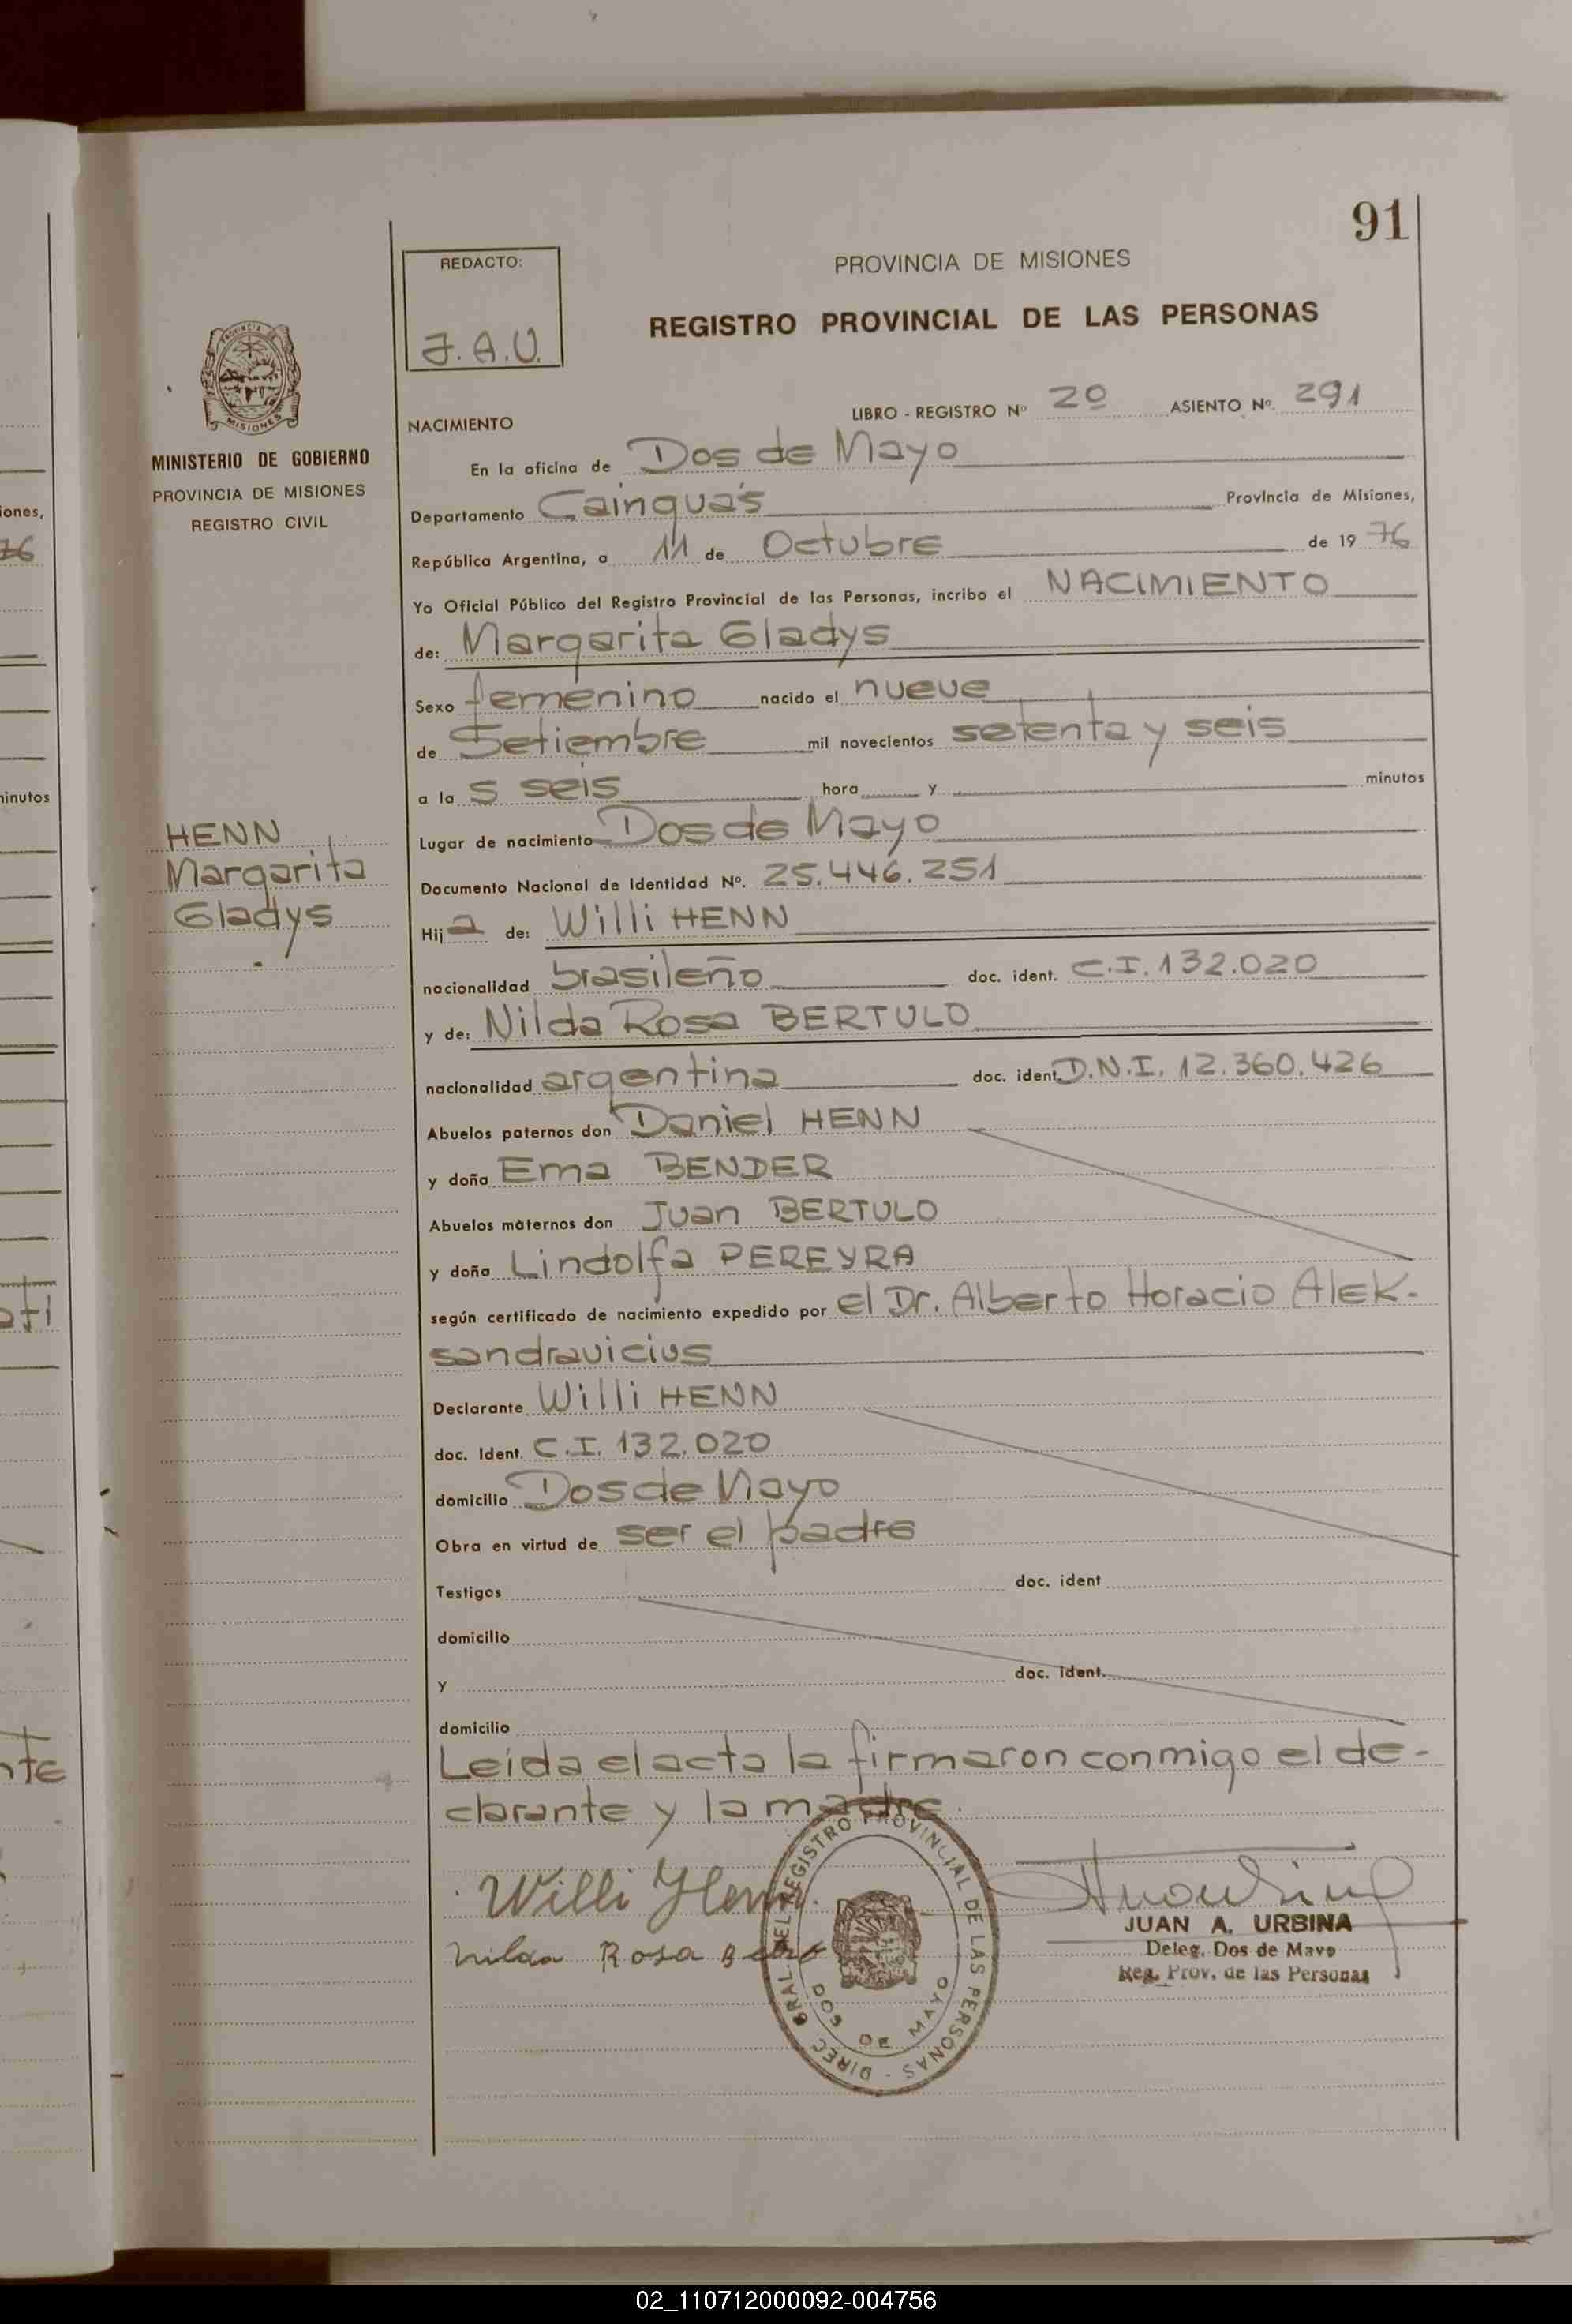 91
REDACTO:
J.A.U.
PROVINCIA DE MISIONES
REGISTRO PROVINCIAL DE LAS PERSONAS
PROVINCIA DE
MISIONES
MINISTERIO DE GOBIERNO
PROVINCIA DE MISIONES
REGISTRO CIVIL
HENN
Margarita
Gladys
NACIMIENTO
LIBRO - REGISTRO Nº 2º ASIENTO Nº. 291
En la oficina de Dos de Mayo
Departamento Cainguás Provincia de Misiones,
República Argentina, a 11 de Octubre de 19 76
Yo Oficial Público del Registro Provincial de las Personas, incribo el NACIMIENTO
de: Margarita Gladys
Sexo femenino nacido el nueve
de Setiembre mil novecientos setenta y seis
a la s seis hora y minutos
Lugar de nacimiento Dos de Mayo
Documento Nacional de Identidad Nº. 25.446.251
Hij a de: Willi HENN
nacionalidad brasileño doc. ident. C.I. 132.020
y de: Nilda Rosa BERTULO
nacionalidad argentina doc. ident D.N.I. 12.360.426
Abuelos paternos don Daniel HENN
y doña Ema BENDER
Abuelos maternos don Juan BERTULO
y doña Lindolfa PEREYRA
según certificado de nacimiento expedido por el Dr. Alberto Horacio Alek-
sandravicius
Declarante Willi HENN
doc. Ident. C.I. 132.020
domicilio Dos de Mayo
Obra en virtud de ser el padre
Testigos doc. ident
domicilio
y doc. ident.
domicilio
Leída el acta la firmaron conmigo el de-
clarante y la madre.
Willi Henn.
Nilda Rosa
DIREC. GRAL. DEL REGISTRO PROVINCIAL DE LAS PERSONAS -
DOS DE MAYO
JUAN A. URBINA
Deleg. Dos de Mayo
Reg. Prov. de las Personas
iones,
76
minutos
nte
02_110712000092-004756